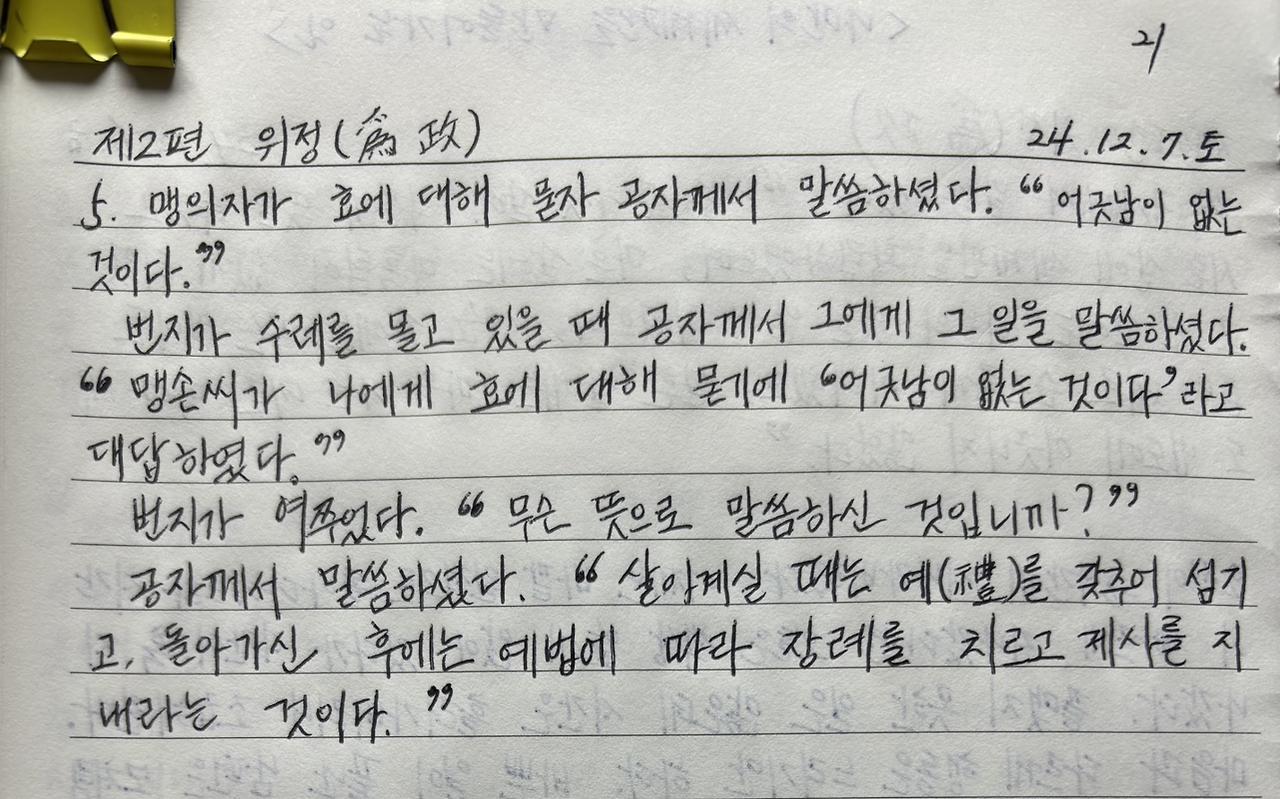 21
제2편 위정(爲政) 24.12.7.토
5. 맹의자가 효에 대해 묻자 공자께서 말씀하셨다. “어긋남이 없는
것이다.”
번지가 수레를 몰고 있을 때 공자께서 그에게 그 일을 말씀하셨다.
“맹손씨가 나에게 효에 대해 묻기에 “어긋남이 없는 것이다’라고
대답하였다.”
번지가 여쭈었다. “무슨 뜻으로 말씀하신 것입니까?”
공자께서 말씀하셨다. “살아계실 때는 예(禮)를 갖추어 섬기
고, 돌아가신 후에는 예법에 따라 장례를 치르고 제사를 지
내라는 것이다.”